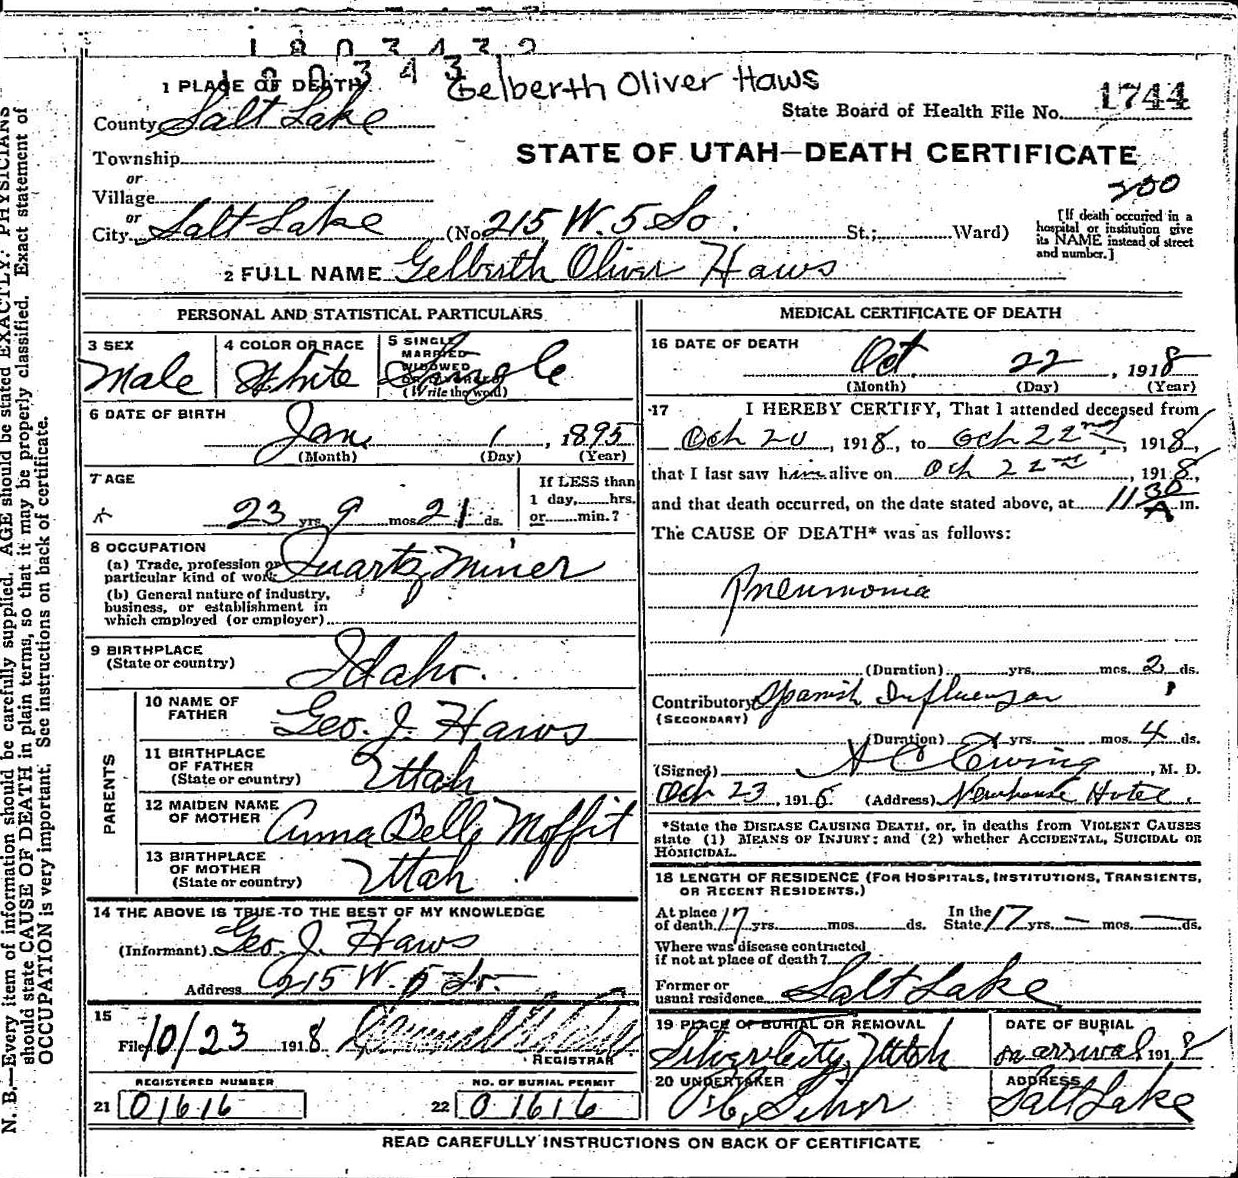 1803432
1803433
Gelberth Oliver Haws
1 PLACE OF DEATH
State Board of Health File No. 1744
County Salt Lake
STATE OF UTAH—DEATH CERTIFICATE
Township
200
or
Village
or
City Salt Lake (No. 215 W. 5 So. St.; Ward)
[If death occurred in a hospital or institution give its NAME instead of street and number.]
2 FULL NAME Gelberth Oliver Haws
PERSONAL AND STATISTICAL PARTICULARS
3 SEX
Male
4 COLOR OR RACE
White
5 SINGLE
MARRIED
WIDOWED
OR DIVORCED
(Write the word)
Single
6 DATE OF BIRTH
Jan. 1, 1895
(Month) (Day) (Year)
7 AGE
23 yrs. 9 mos. 21 ds.
If LESS than
1 day, hrs.
or min.?
8 OCCUPATION
(a) Trade, profession or
particular kind of work Quartz Miner
(b) General nature of industry,
business, or establishment in
which employed (or employer)
9 BIRTHPLACE
(State or country)
Idaho.
PARENTS
10 NAME OF
FATHER
Geo. J. Haws
11 BIRTHPLACE
OF FATHER
(State or country)
Utah
12 MAIDEN NAME
OF MOTHER
Anna Belle Moffit
13 BIRTHPLACE
OF MOTHER
(State or country)
Utah
14 THE ABOVE IS TRUE TO THE BEST OF MY KNOWLEDGE
(Informant) Geo. J. Haws
Address 215 W. 5 So.
15
Filed 10/23 1918
REGISTRAR
REGISTERED NUMBER
21 01616
NO. OF BURIAL PERMIT
22 01616
MEDICAL CERTIFICATE OF DEATH
16 DATE OF DEATH
Oct. 22, 1918
(Month) (Day) (Year)
17 I HEREBY CERTIFY, That I attended deceased from
Oct 20, 1918, to Oct 22nd, 1918,
that I last saw him alive on Oct 22nd, 1918,
and that death occurred, on the date stated above, at 11 30 A m.
The CAUSE OF DEATH* was as follows:
Pneumonia
(Duration) yrs. mos. 2 ds.
Contributory Spanish Influenza
(SECONDARY)
(Duration) yrs. mos. 4 ds.
(Signed) A C Ewing, M. D.
Oct 23, 1918 (Address) Newhouse Hotel.
*State the DISEASE CAUSING DEATH, or, in deaths from VIOLENT CAUSES
state (1) MEANS OF INJURY; and (2) whether ACCIDENTAL, SUICIDAL OR
HOMICIDAL.
18 LENGTH OF RESIDENCE (FOR HOSPITALS, INSTITUTIONS, TRANSIENTS,
OR RECENT RESIDENTS.)
At place
of death 17 yrs. mos. ds.
In the
State 17 yrs. — mos. — ds.
Where was disease contracted
if not at place of death?
Former or
usual residence Salt Lake
19 PLACE OF BURIAL OR REMOVAL
Silver City, Utah
DATE OF BURIAL
on arrival 1918
20 UNDERTAKER
ADDRESS
Salt Lake
READ CAREFULLY INSTRUCTIONS ON BACK OF CERTIFICATE
N. B.—Every item of information should be carefully supplied. AGE should be stated EXACTLY. PHYSICIANS
should state CAUSE OF DEATH in plain terms, so that it may be properly classified. Exact statement of
OCCUPATION is very important. See instructions on back of certificate.